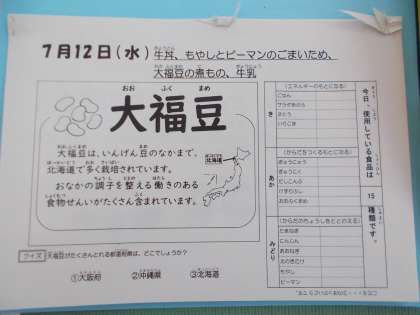 7月12日(水) 牛丼、もやしとピーマンのごまいため、
大福豆の煮もの、牛乳
大福豆
おお ふく まめ
大福豆は、いんげん豆のなかまで、
北海道で多く栽培されています。
おなかの調子を整える働きのある
食物せんいがたくさん含まれています。
北海道
クイズ 大福豆がたくさんとれる都道府県は、どこでしょうか?
①大阪府 ②沖縄県 ③北海道
今日、使用している食品は
15
種類です。
き
(エネルギーのもとになる)
ごはん
サラダあぶら
さとう
いりごま
あか
(からだをつくるもとになる)
ぎゅうにゅう
ぎゅうにく
だしこんぶ
けずりぶし
おおふくまめ
みどり
(からだのちょうしをととのえる)
たまねぎ
にんじん
あおねぎ
えのきたけ
もやし
ピーマン